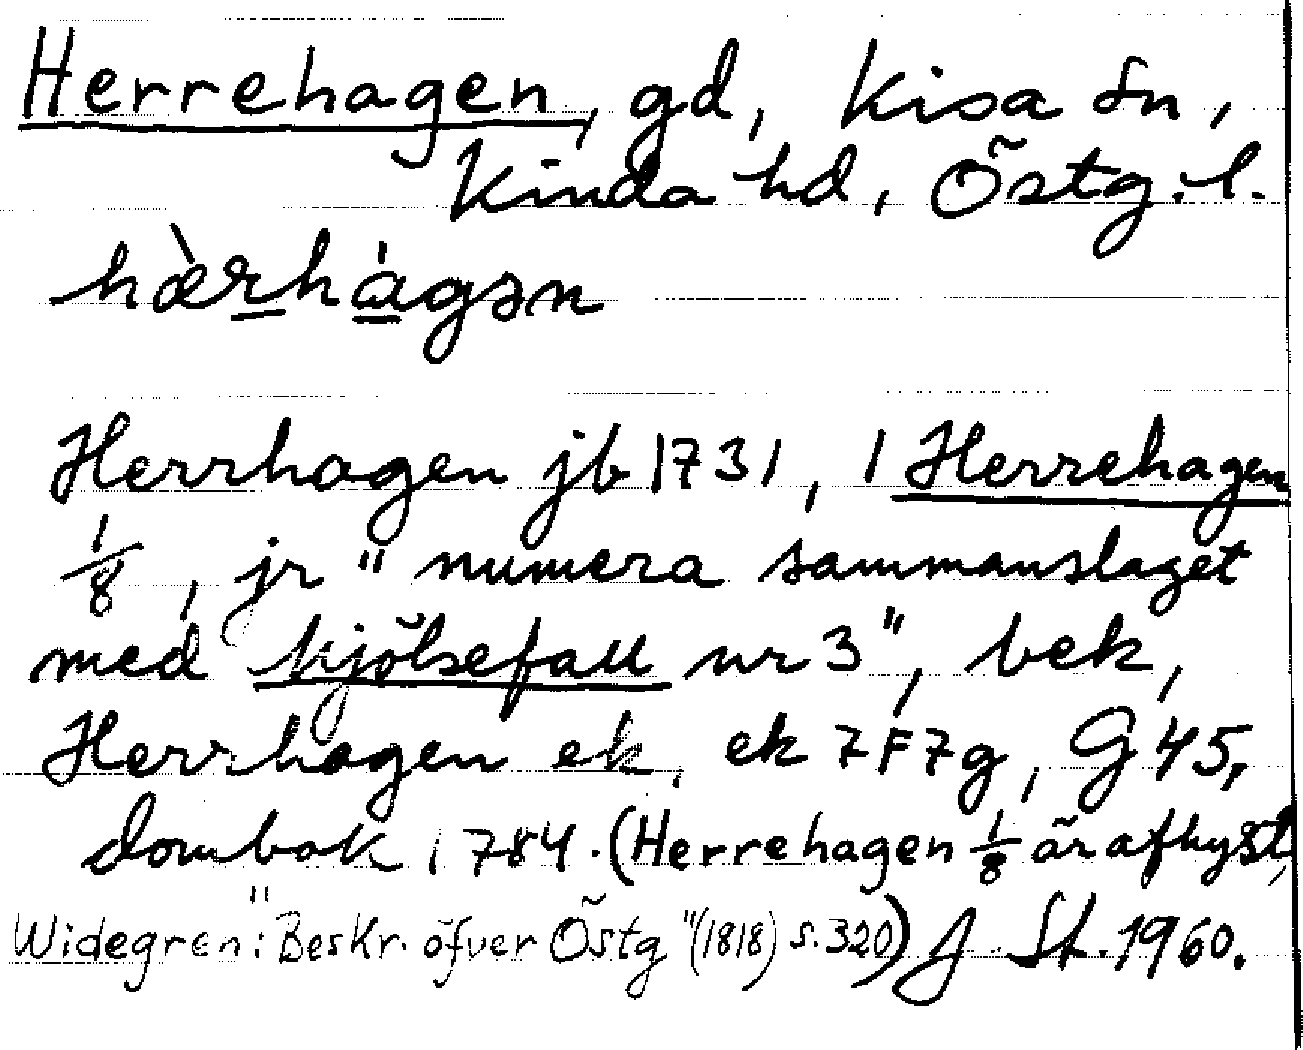 Herrehagen, gd, Kisa sn,
Kinda hd, Östg. l.
hæ̀rhàgən
Herrhagen jb 1731, 1 Herrehagen
1/8, jr "numera sammanslaget
med Kjölsefall nr 3", bek,
Herrhagen ek, ek 7F7g, G45,
dombok 1784. (Herrehagen 1/8 är afhyst,
Widegren: "Beskr. öfver Östg" (1818) s. 320) J St. 1960.